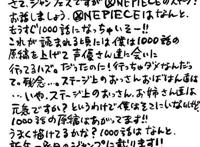 さて、ジャンフェスですが ⓍNEPIECEのステージ
お話しましょう。ⓍNEPIECEはなんと、
もうすぐ1000話になっちゃいそー!!
これが読まれる頃には僕は1000話の
原稿を上げて声優さん達に会いに
行ってるハズ。だったのに!行っちゃダメなんだっ
て。残念…。ステージ上のおっさんおばはん達は
…いやっ、ステージ上のおっさん、お姉さん達は
元気ですか?というわけで僕はそこにいなければ
1000話の原稿はあがってます!!
うまく描けてるかな?1000話は なんと、